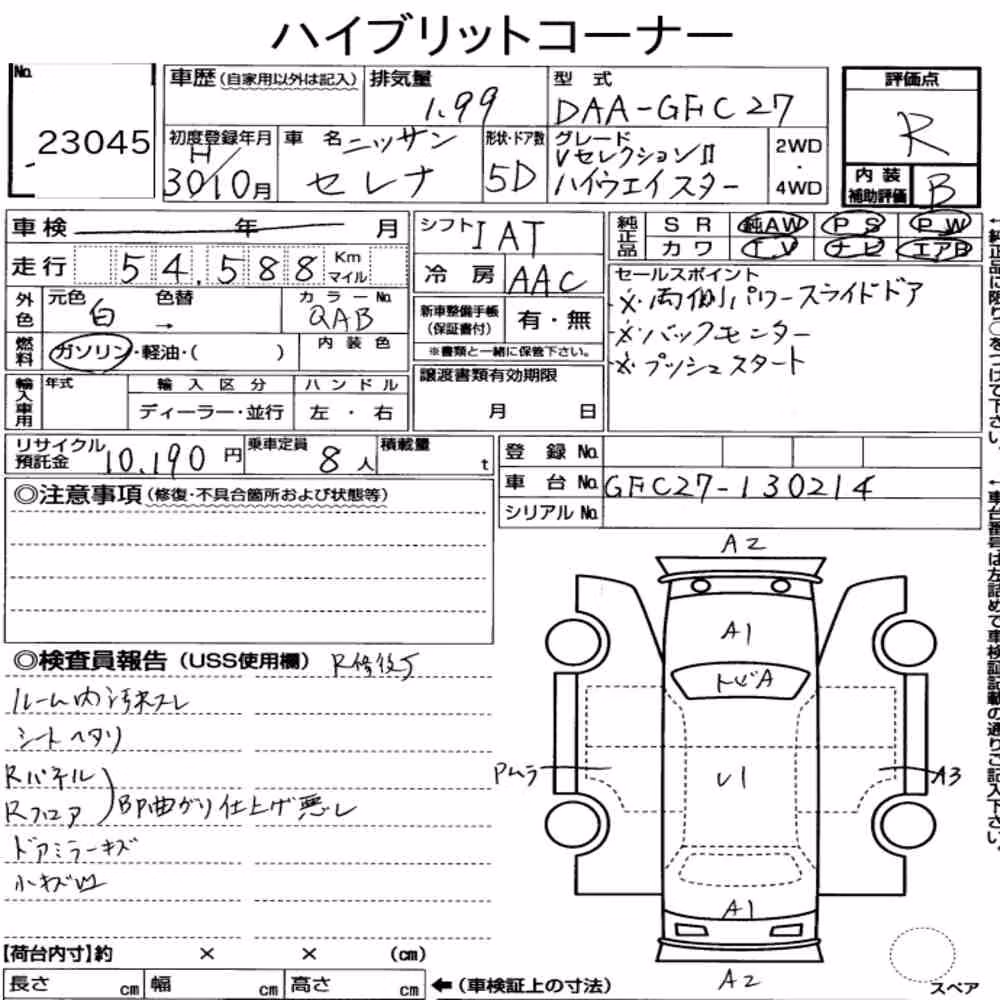 ハイブリットコーナー
No. 23045
車歴 (自家用以外は記入)
排気量 1.99
型式 DAA-GFC27
評価点 R
内装補助評価 B
初度登録年月 H/30 10月
車名 ニッサン セレナ
形状・ドア数 5D
グレード Vセレクション II ハイウエイスター
2WD・4WD
車検 年 月
走行 54,588 Km マイル
シフト IAT
冷房 AAC
純正品 SR 純AW PS PW
カワ TV ナビ エアB
セールスポイント
※両側パワースライドドア
※バックモニター
※プッシュスタート
外色 元色 白 色替 →
カラーNo. QAB
燃料 ガソリン・軽油・( )
内装色
新車整備手帳 (保証書付) 有・無
※書類と一緒に保管下さい。
譲渡書類有効期限
月 日
輸入車用 年式 輸入区分 ハンドル
ディーラー・並行 左・右
リサイクル預託金 10,190円
乗車定員 8人
積載量 t
登録 No.
車台 No. GFC27-130214
シリアル No.
←純正品に限り○をつけて下さい。
←車台番号は左詰めで車検証記載の通りご記入下さい。
◎注意事項 (修復・不具合箇所および状態等)
◎検査員報告 (USS使用欄) R修復歴
ルーム内汚れスレ
シートヘタリ
Rパネル
Rフロア
BP曲がり仕上げ悪し
ドアミラーキズ
小キズ凹
A2
A1
トビA
Pムラ
U1
A3
A1
A2
スペア
【荷台内寸】約 × × (cm)
長さ cm 幅 cm 高さ cm ←(車検証上の寸法)